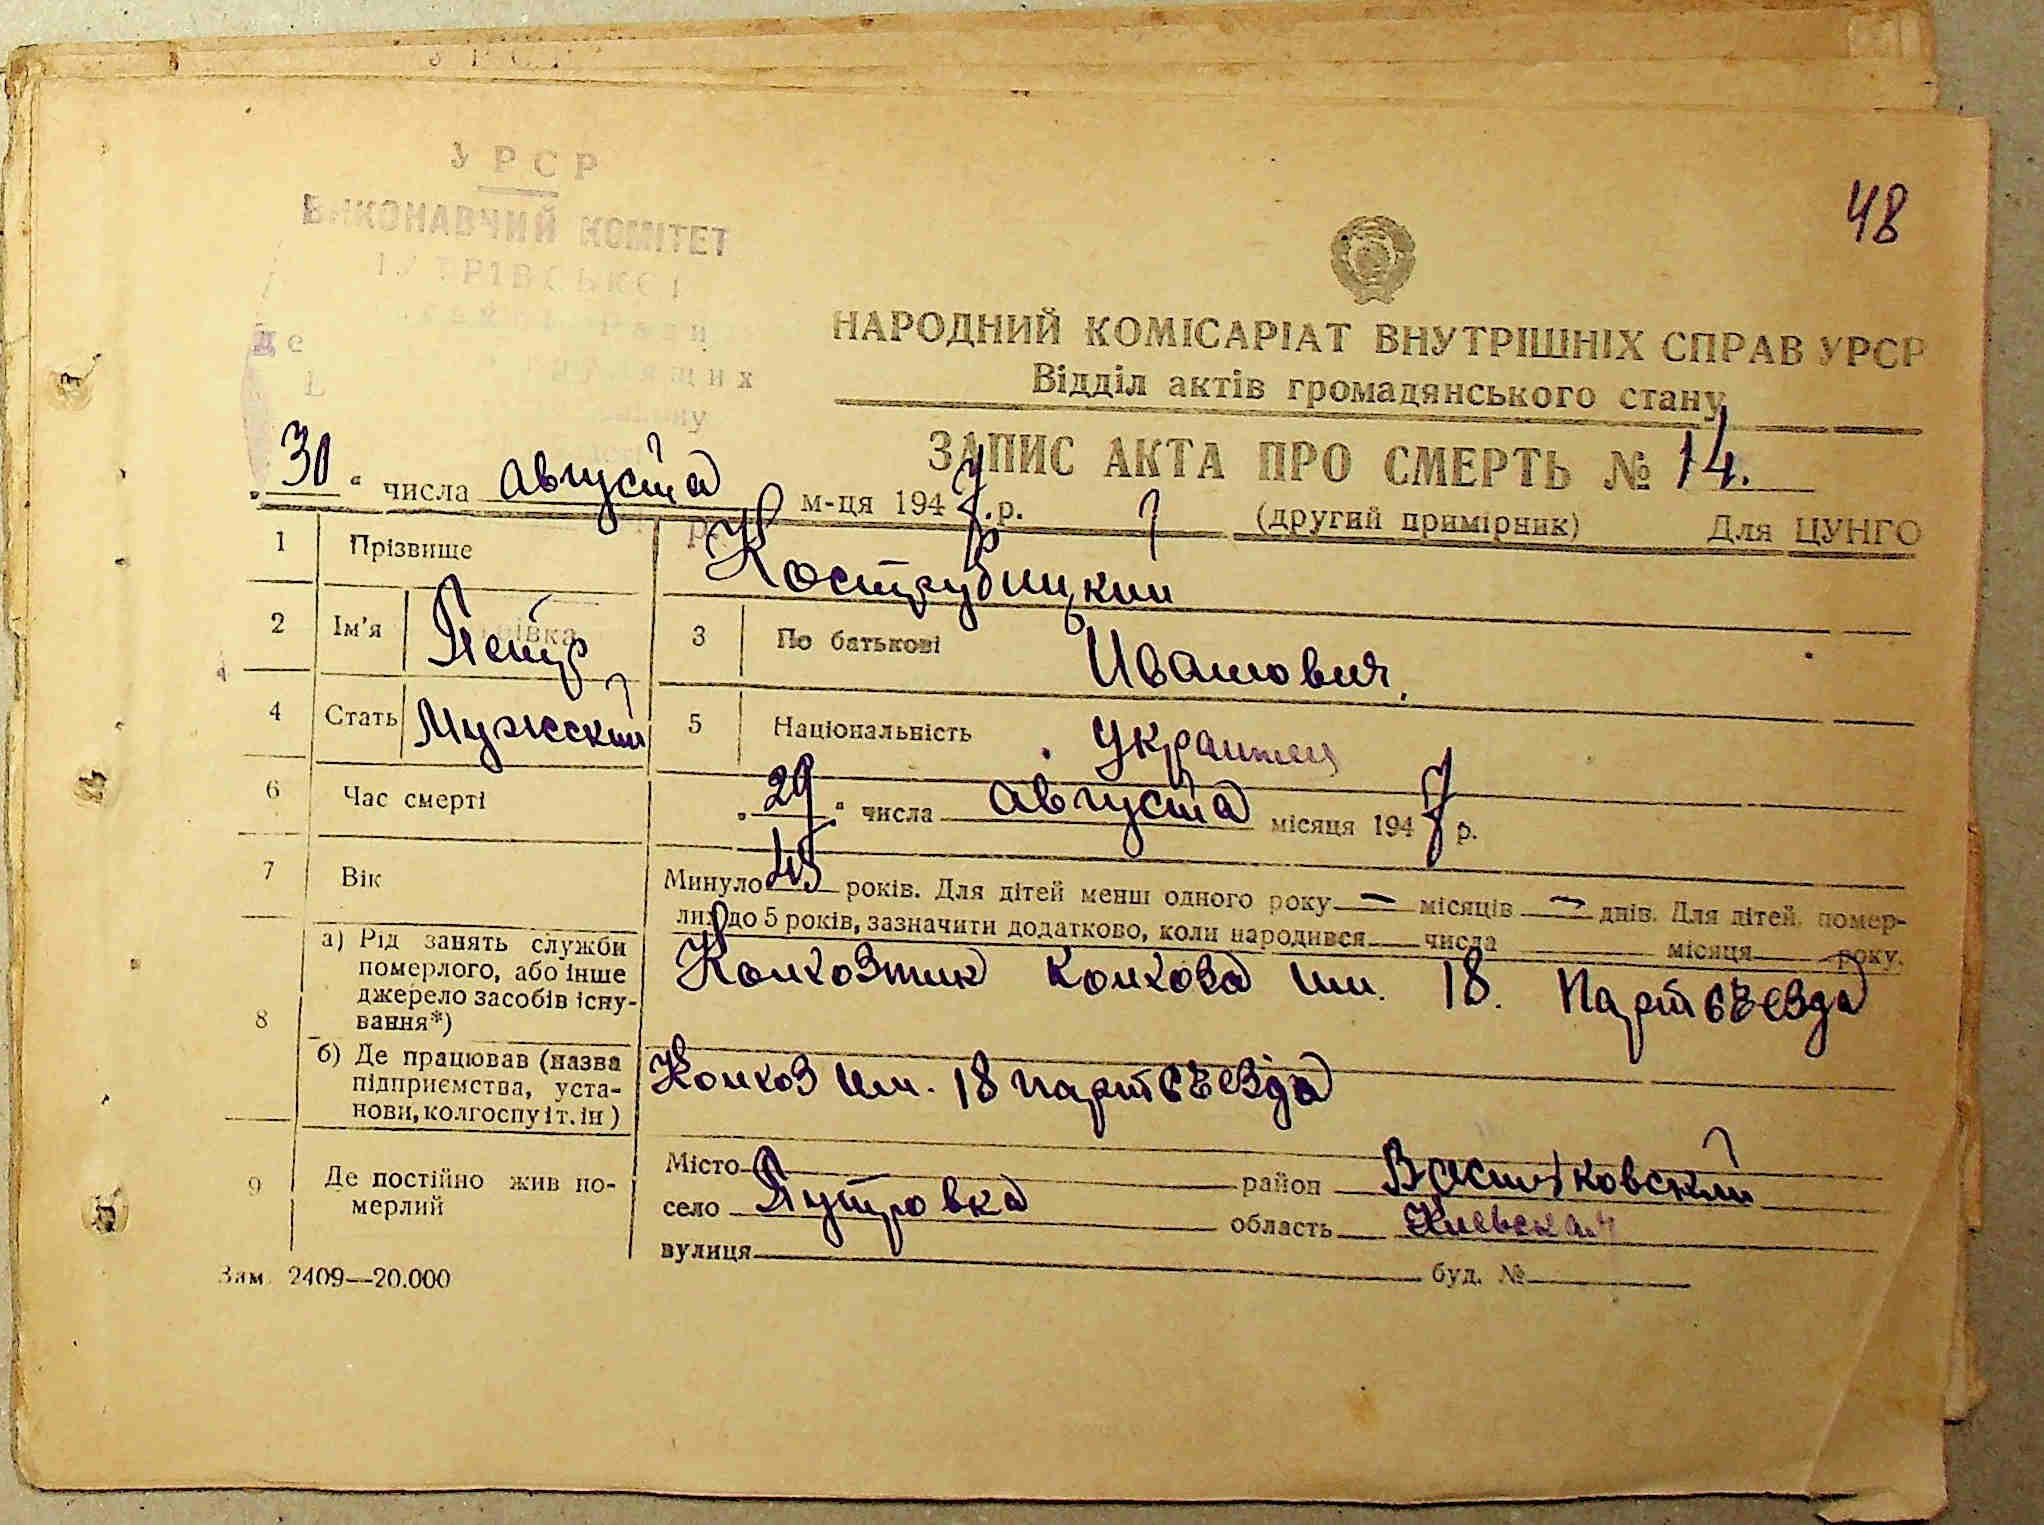 48
УРСР
ВИКОНАВЧИЙ КОМІТЕТ
НАРОДНИЙ КОМІСАРІАТ ВНУТРІШНІХ СПРАВ УРСР
Відділ актів громадянського стану
ЗАПИС АКТА ПРО СМЕРТЬ № 14.
„30“ числа августа м-ця 1947 р. (другий примірник) Для ЦУНГО
1 Прізвище Кострубицкий
2 Ім'я Петр 3 По батькові Иванович.
4 Стать Мужский 5 Національність Украинец
6 Час смерті „29“ числа августа місяця 1947 р.
7 Вік Минуло 45 років. Для дітей менш одного року — місяців — днів. Для дітей, помер-
лих до 5 років, зазначити додатково, коли народився числа місяця року.
8 а) Рід занять служби
померлого, або інше
джерело засобів існу-
вання*)
Колхозник колхоза им. 18. Партсъезда
б) Де працював (назва
підприємства, уста-
нови, колгоспу і т. ін)
Колхоз им. 18 партсъезда
9 Де постійно жив по-
мерлий
Місто район Васильковский
село Путровка область Киевская
вулиця буд. №
Зам. 2409—20.000